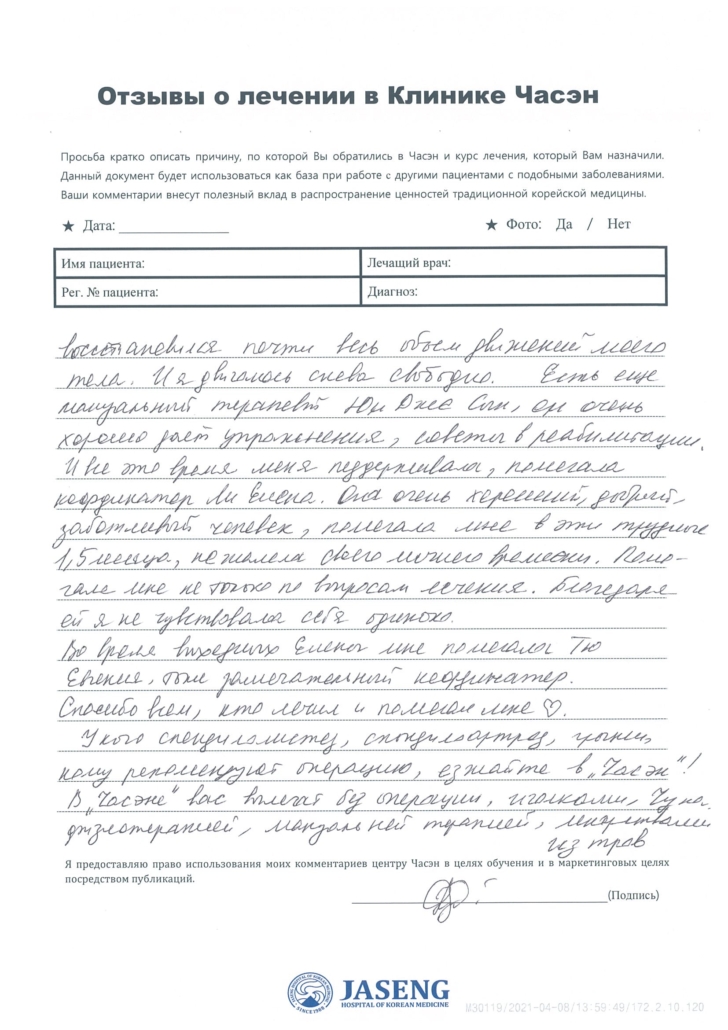 Отзывы о лечении в Клинике Часэн
Просьба кратко описать причину, по которой Вы обратились в Часэн и курс лечения, который Вам назначили.
Данный документ будет использоваться как база при работе с другими пациентами с подобными заболеваниями.
Ваши комментарии внесут полезный вклад в распространение ценностей традиционной корейской медицины.
★ Дата: ________________ ★ Фото: Да / Нет
Имя пациента: Лечащий врач:
Рег. № пациента: Диагноз:
восстановился почти весь объем движений моего
тела. И я двигаюсь снова свободно. Есть еще
мануальный терапевт Юн Джее Сын, он очень
хорошо дает упражнения, советы в реабилитации.
И все это время меня поддерживала, помогала
координатор Ли Елена. Она очень хороший, добрый,
заботливый человек, помогала мне в эти трудные
1,5 месяца, не жалела своего личного времени. Помо-
гала мне не только по вопросам лечения. Благодаря
ей я не чувствовала себя одиноко.
Во время выходных Елены мне помогала Тю
Евгения, замечательный координатор.
Спасибо всем, кто лечил и помогал мне ♡.
У кого спондилолистез, спондилоартроз, грыжи,
кому рекомендуют операцию, езжайте в „Часэн"!
В „Часэне" вас вылечат без операции, иголками, Чуна,
физиотерапией, мануальной терапией, лекарствами
из трав
Я предоставляю право использования моих комментариев центру Часэн в целях обучения и в маркетинговых целях
посредством публикаций.
(Подпись)
JASENG
HOSPITAL OF KOREAN MEDICINE
SINCE 1988
M30119/2021-04-08/13:59:49/172.2.10.120